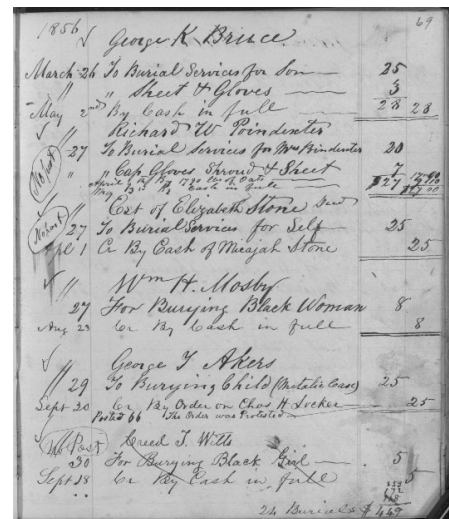 69
1856 George K. Bruce
March 26 To Burial Services for Son 25
" " Sheet & Gloves 3
May 2nd By Cash in full 28 28
Richard W Poindexter
No post
" 27 To Burial Services for Mrs Poindexter 20
" " Cap Gloves Shroud & Sheet 7
April 9th By 17.00
May By Cash in full $27
" Est of Elizabeth Stone Decd
No post
27 To Burial Services for Self 25
Apl 1 Cr By Cash of Micajah Stone 25
" Wm H. Mosby
27 For Burying Black Woman 8
Aug 23 Cr By Cash in full 8
" George T Akers
" 29 To Burying Child (Metalic Case) 25
Sept 20 Cr By Order on Chas H. Locker 25
Posted 66 The Order was Protested
No Post Creed T. Wills
30 For Burying Black Girl 5
Sept 18 Cr By Cash in full 5
24 Burials $449